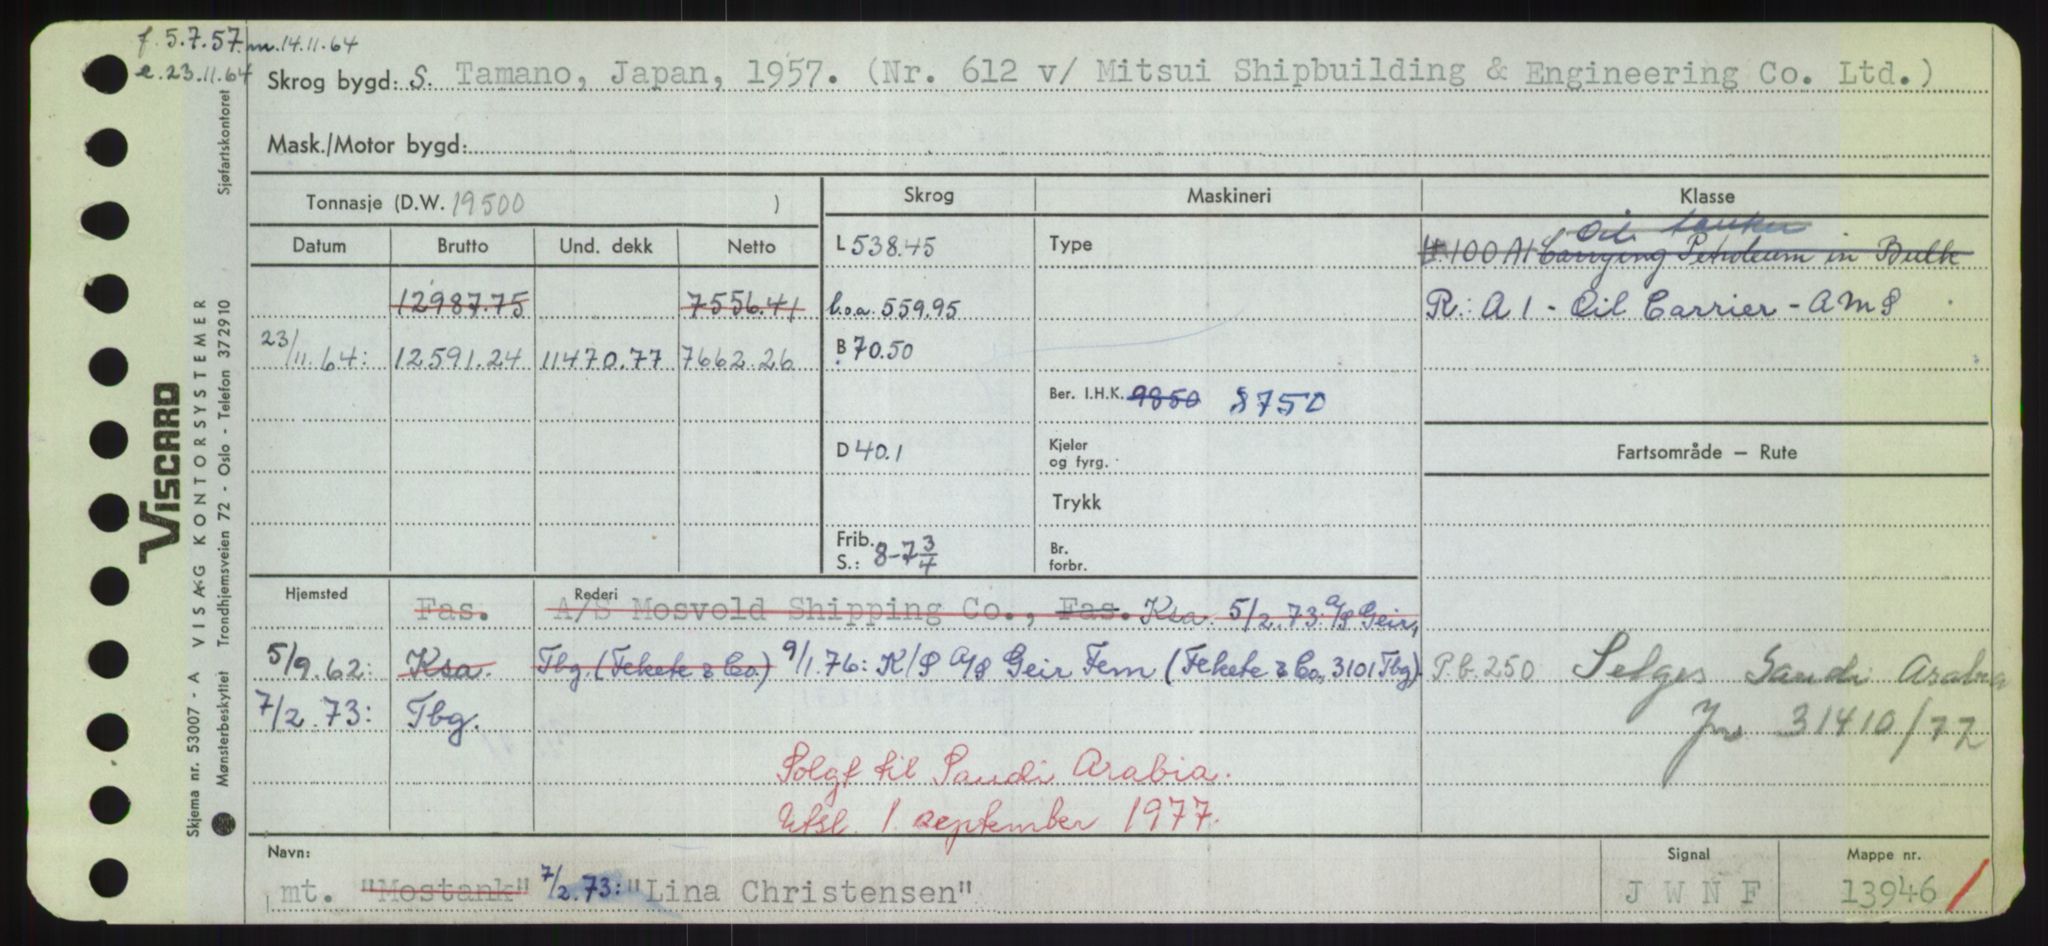 f. 5.7.57. m. 14.11.64
e. 23.11.64
Skrog bygd: S. Tamano, Japan, 1957. (Nr. 612 v/ Mitsui Shipbuilding & Engineering Co. Ltd.)
Mask./Motor bygd:
Tonnasje (D.W. 19500 )
Skrog
Maskineri
Klasse
Datum
Brutto
Und. dekk
Netto
L 538.45
Type
Oil tanker
100 A1 Carrying Petroleum in Bulk
12987.75
7556.41
l.o.a. 559.95
R: A 1 - Oil Carrier - AMS
23/11.64:
12591.24
11470.77
7662.26
B 70.50
Ber. I.H.K. 9850 8750
D 40.1
Kjeler og fyrg.
Fartsområde – Rute
Trykk
Frib. S.: 8-7 3/4
Br. forbr.
Hjemsted
Fas.
Rederi
A/S Mosvold Shipping Co., Fas. Ksa. 5/2.73: A/S Geir,
5/9.62:
Ksa.
Tbg. (Fekete & Co.) 9/1.76: K/S A/S Geir Fem (Fekete & Co., 3101 Tbg)
P.b. 250
Selges Saudi Arabia
7/2.73:
Tbg.
Jnr 31410/77
Solgt til Saudi Arabia.
Utsl. 1. september 1977.
Navn:
mt. "Mostank" 7/2.73: "Lina Christensen"
Signal
J W N F
Mappe nr.
13946
Viscard
VISAG KONTORSYSTEMER
Trondhjemsveien 72 - Oslo - Telefon 372910
Sjøfartskontoret
Skjema nr. 53007 - A
Mønsterbeskyttet